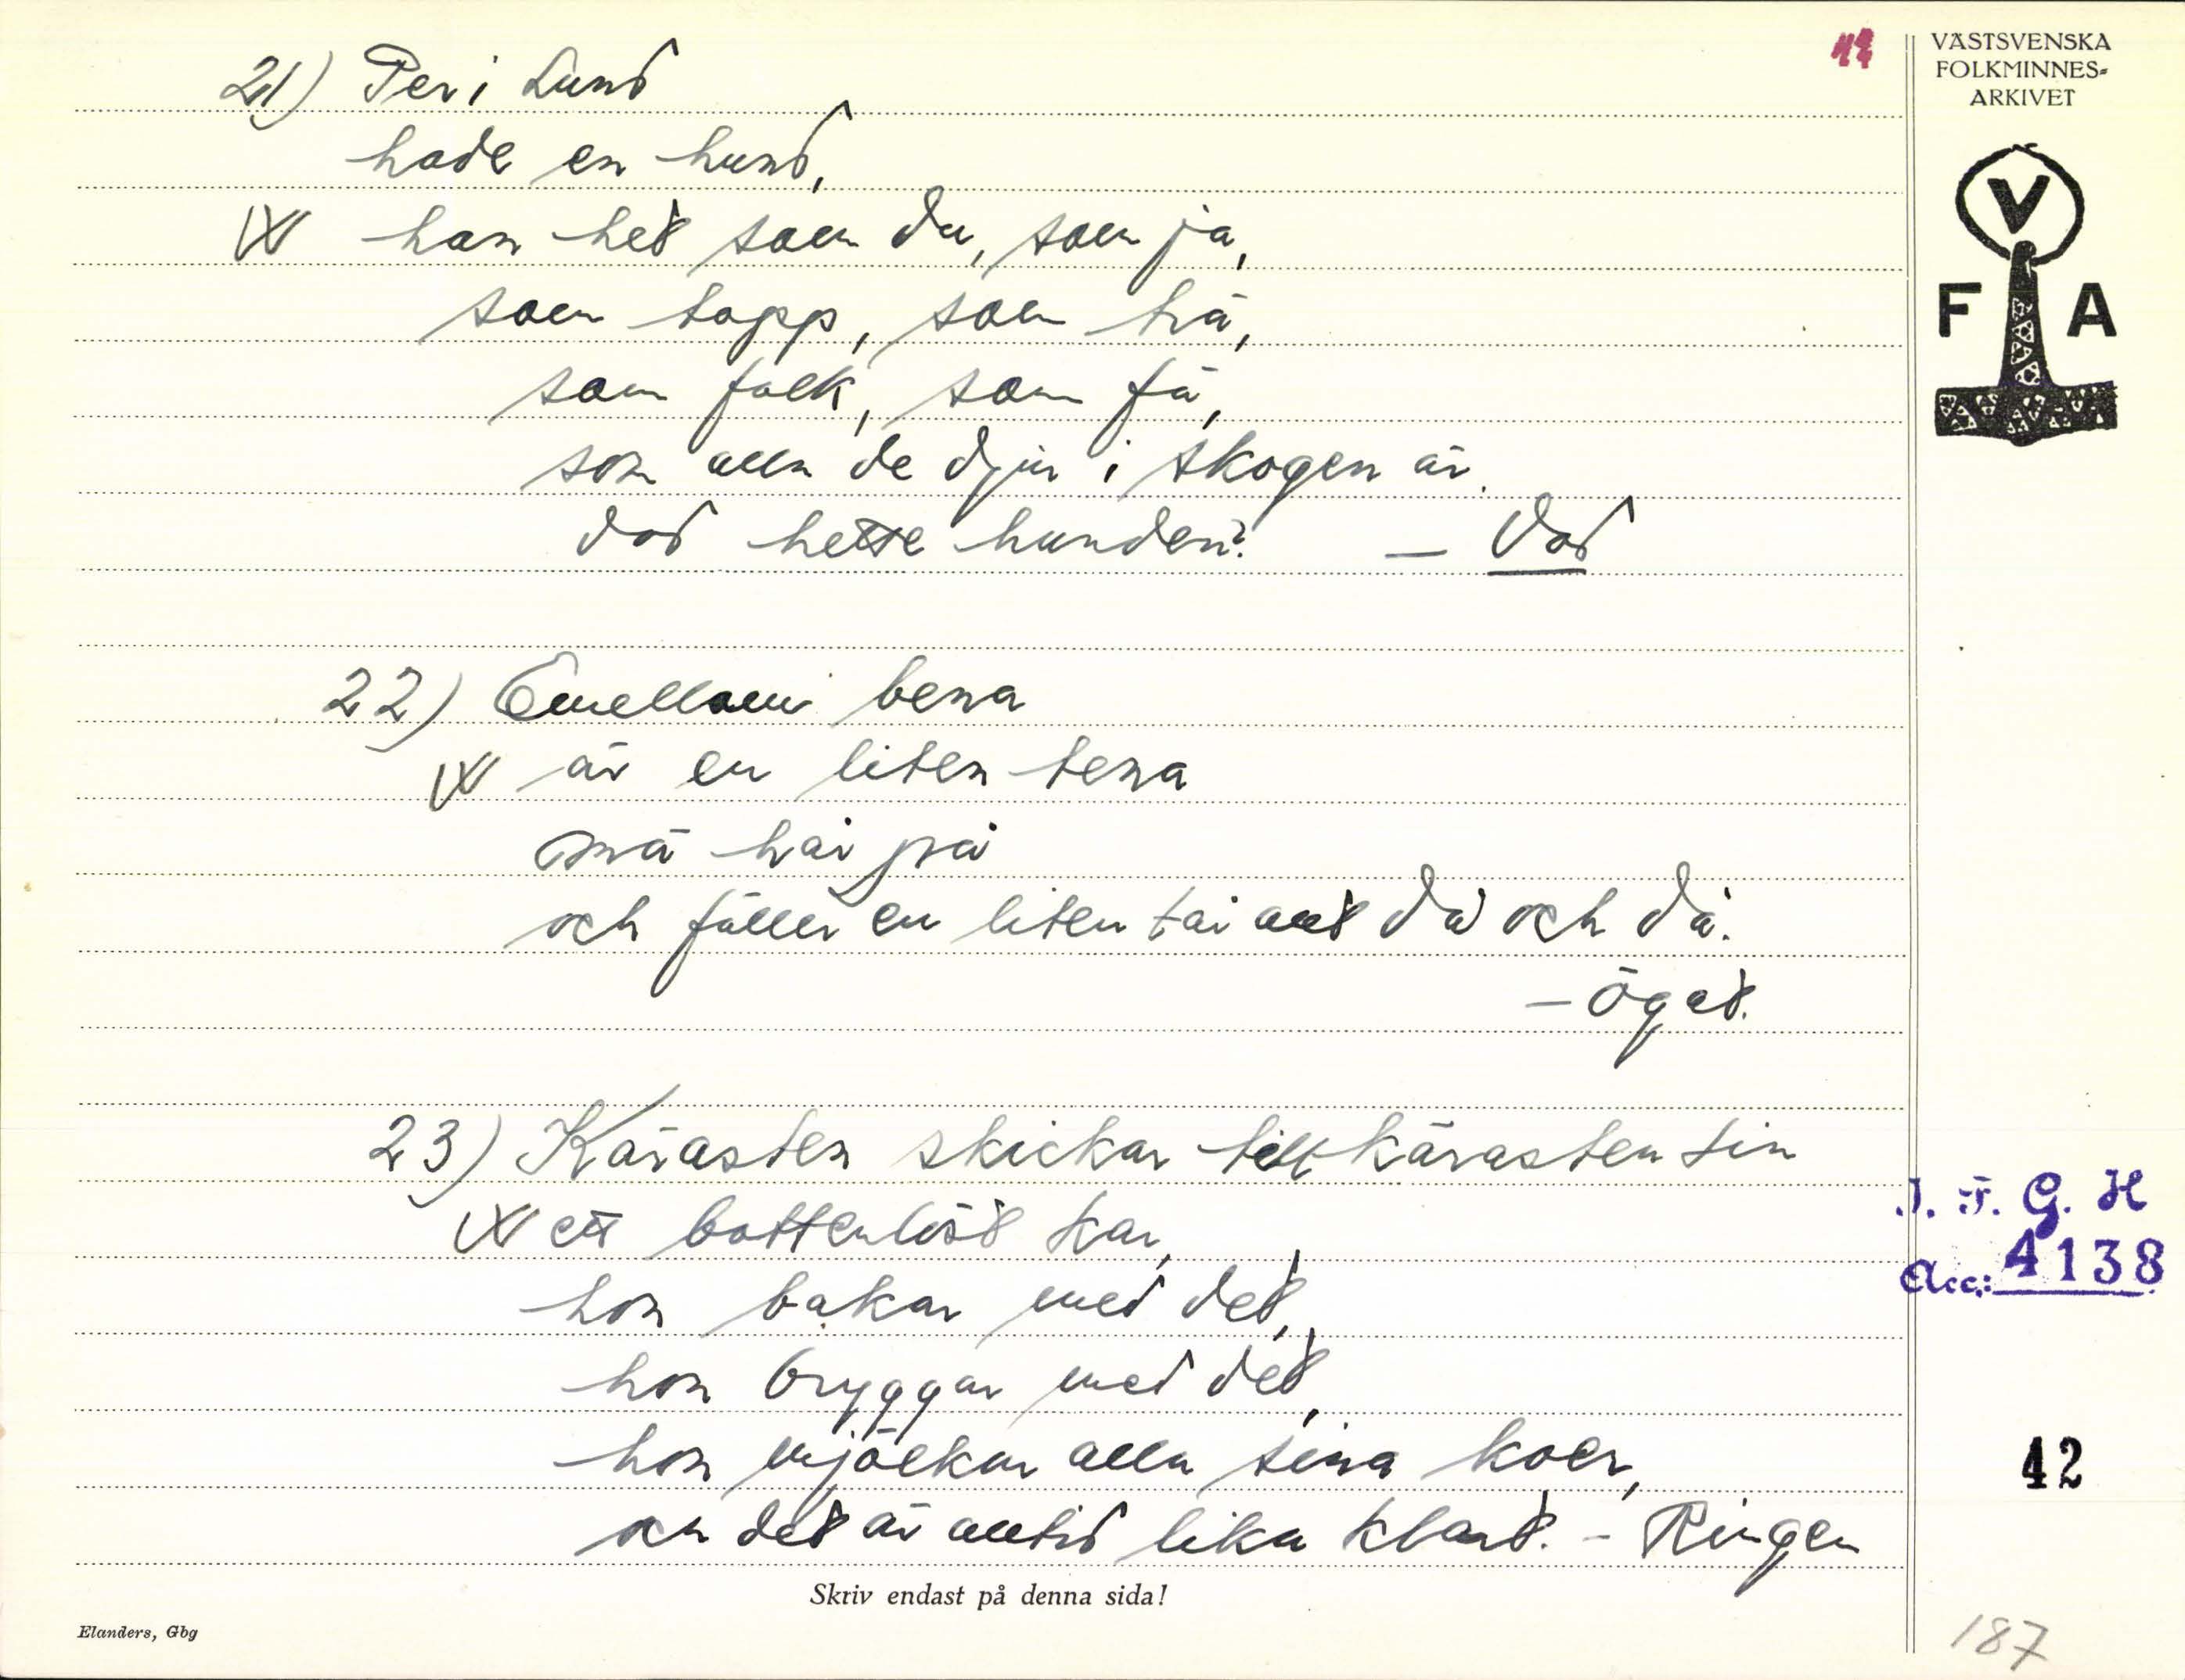 VÄSTSVENSKA
FOLKMINNES-
ARKIVET
V
F A
21) Per i Lund
hade en hund,
han het som du, som ja,
som topp, som trä,
som folk, som fä,
som alla de djur i skogen är.
Vad hette hunden? — Vad
22) Emellom bena
är en liten tena
små hår på
och fäller en liten tår allt då och då.
— Ögat.
23) Kärasten skickar till kärasten sin
ett bottenlöst kar,
hon bakar med det,
hon bryggar med det,
hon mjölkar alla sina koer,
och det är alltid lika klart. – Ringen
I. F. G. H
Acc: 4138
42
Skriv endast på denna sida!
Elanders, Gbg
187